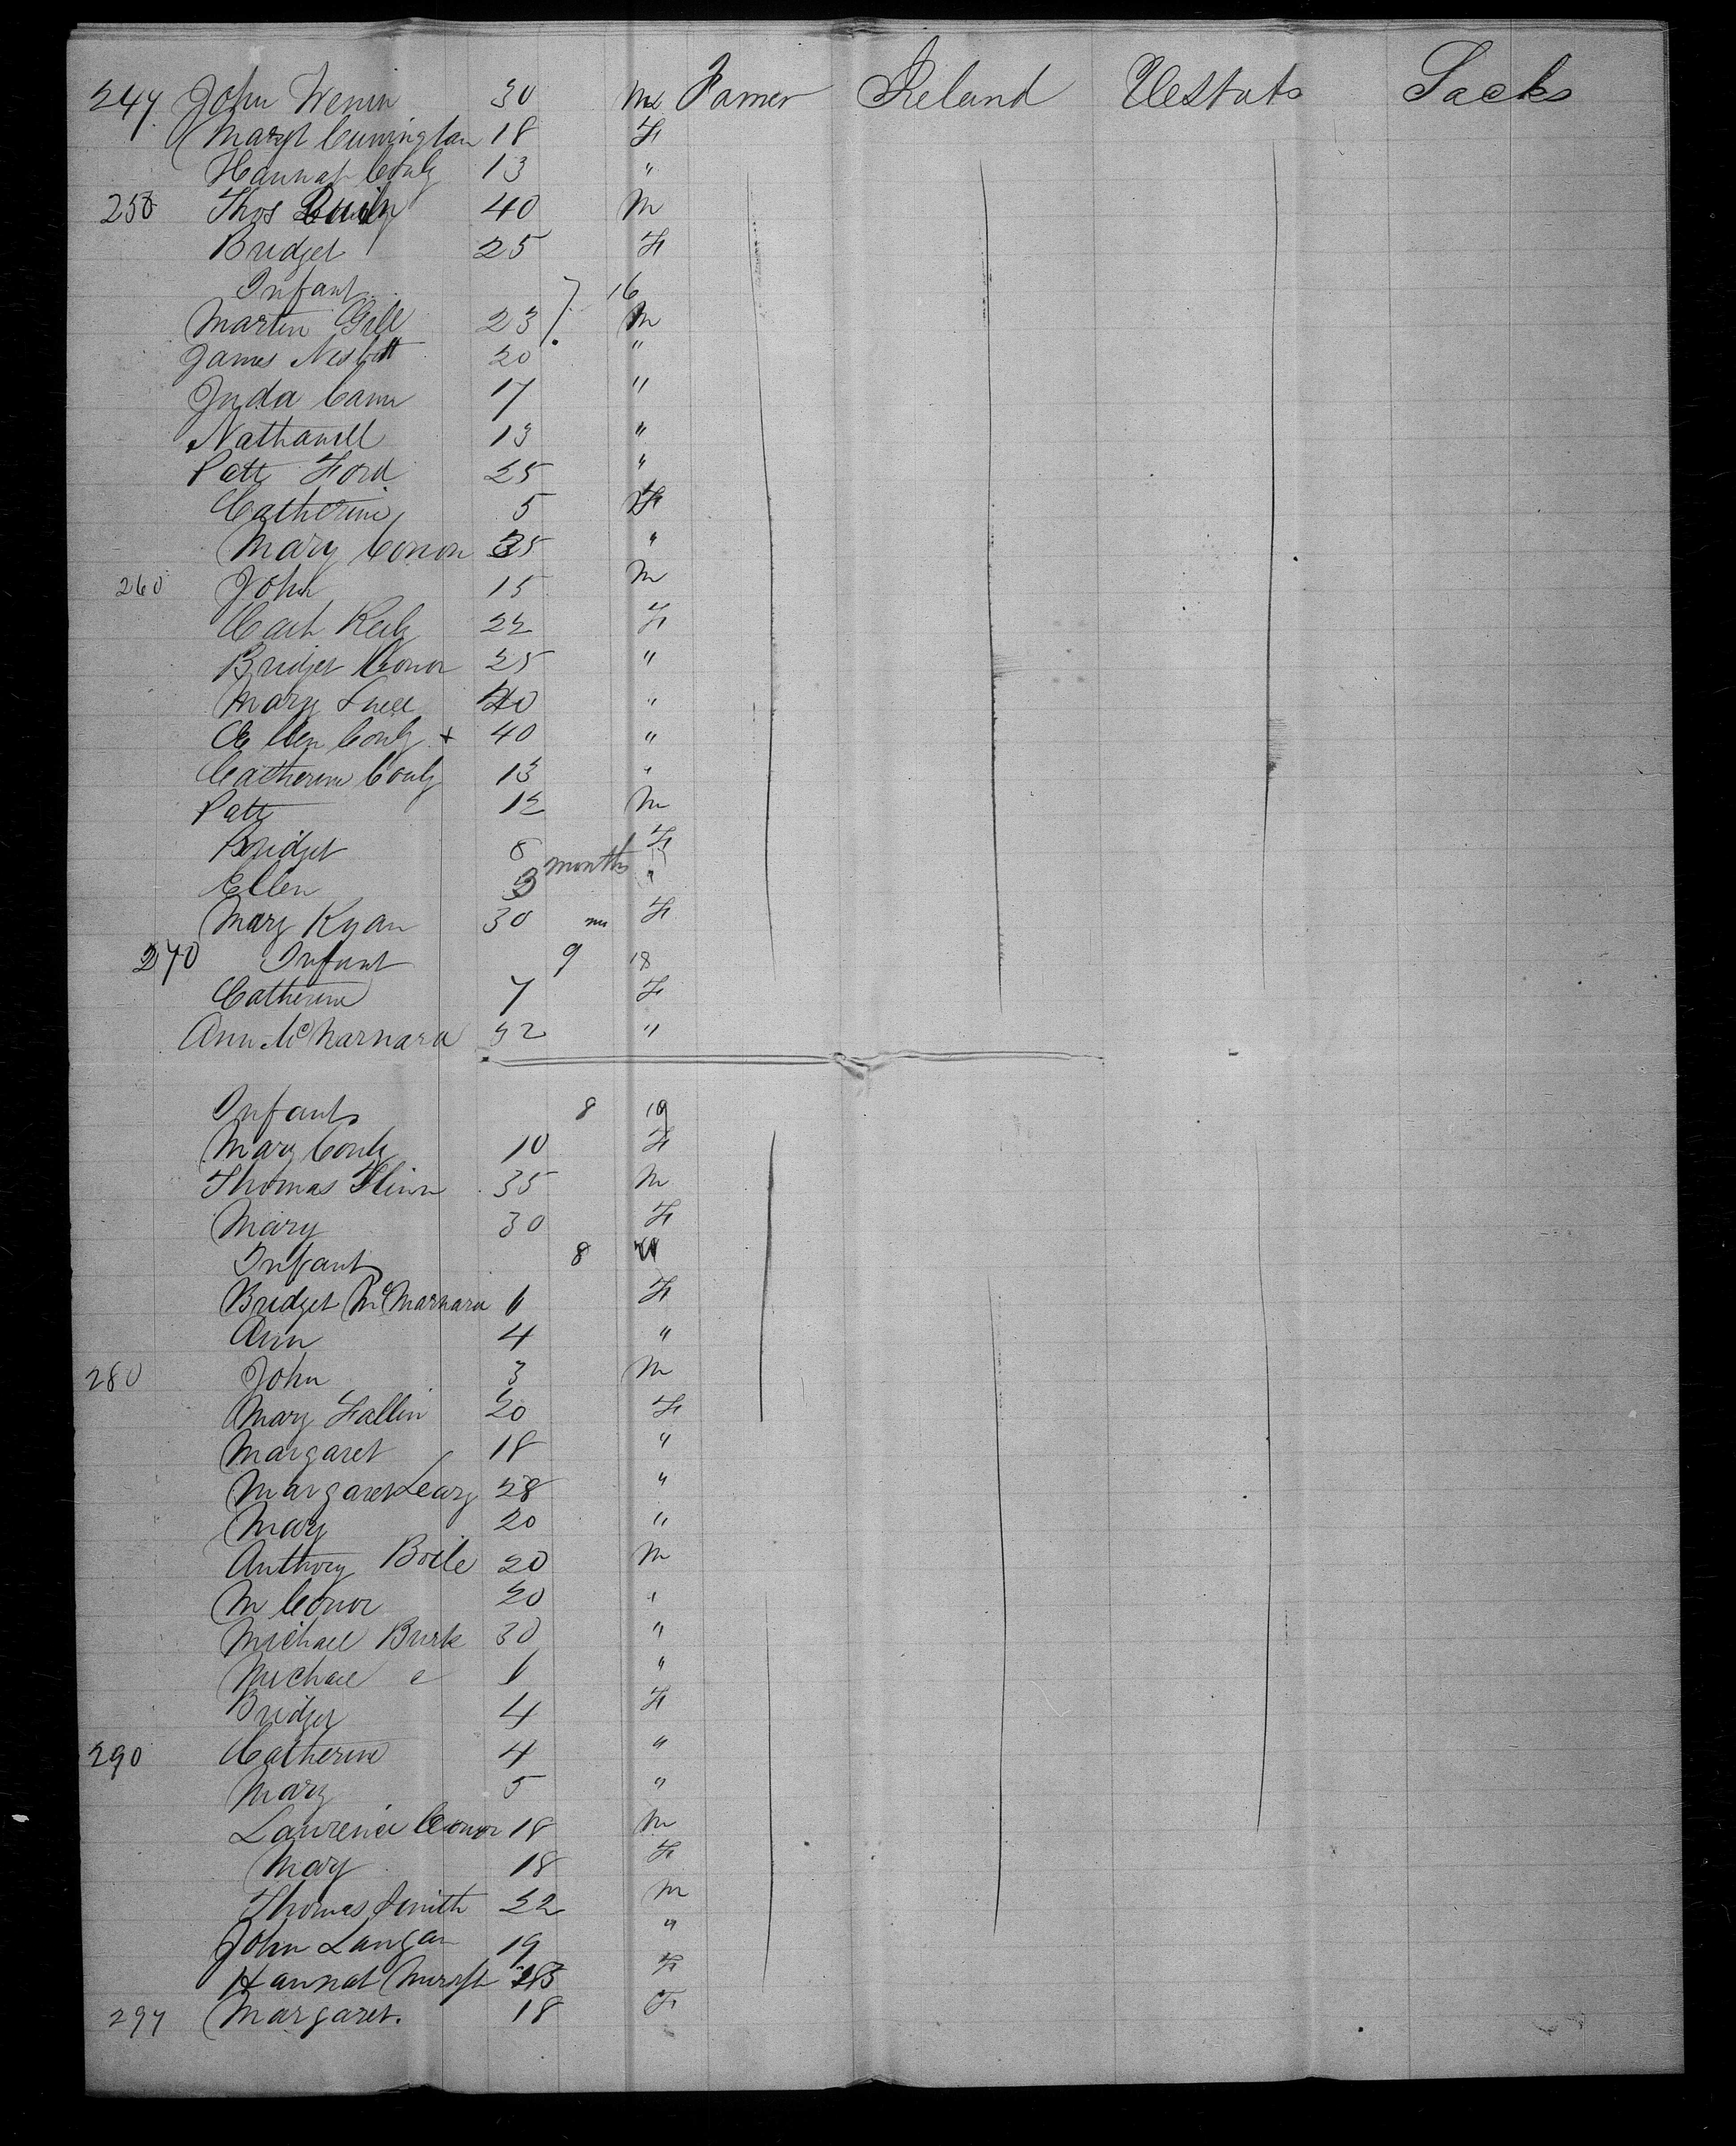 247 John Wenin 30 M Farmer Ireland UeStats Sacks
Maryt Cunnington 18 F
Hannah Conly 13 "
250 Thos 40 M
Bridget 25 F
Infant 7 16
Martin Gill 23 M
James Nesbitt 20 "
Juda Cann 17 "
Nathaniell 13 "
Patt Ford 25 "
Catherine 5 F
Mary Conor 35 "
260 John 15 M
Cath Reily 22 F
Bridget Conor 25 "
Mary 40 "
Ellen Conly + 40 "
Catherine Conly 13 "
Patt 12 M
Bridget 8 F
Ellen 3 months "
Mary Ryan 30 ms F
270 Infant 9 18
Catherine 7 F
Ann Mc Narnara 32 "
Infant 8 19
Mary Conly 10 F
Thomas Flinn 35 M
Mary 30 F
Infant 8
Bridget Mc Marnara 6 F
Ann 4 "
280 John 3 M
Mary Fallin 20 F
Margaret 18 "
Margaret Leary 28 "
Mary 20 "
Anthony Boile 20 M
M Conor 20 "
Michael Burk 30 "
Michael 6 "
Bridget 4 F
290 Catherine 4 "
Mary 5 "
Laurence Conor 18 M
Mary 18 F
Thomas Smith 22 M
John Langan 19 "
Hannah F
297 Margaret. 18 F